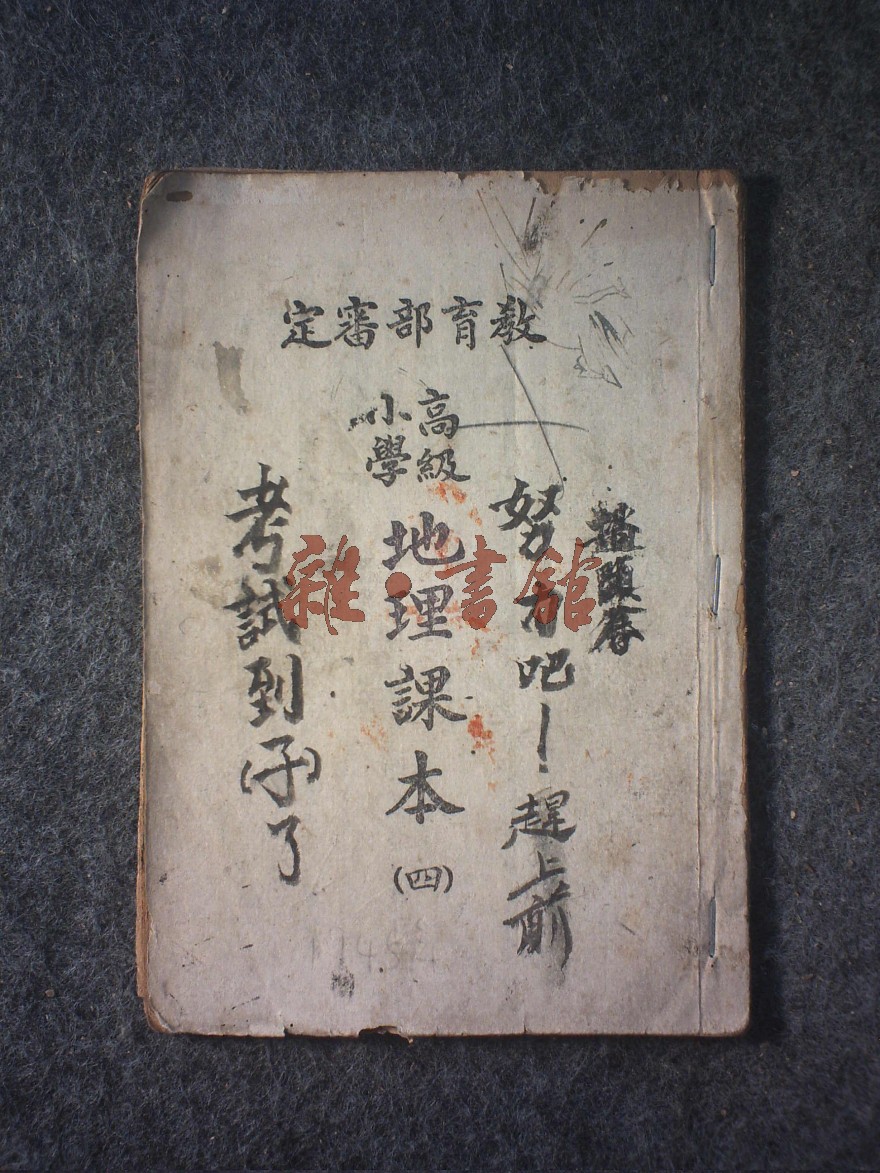 教育部審定
努力吧！趕上前
高級
小學
地理課本
(四)
考試到(子)了
雜·書館